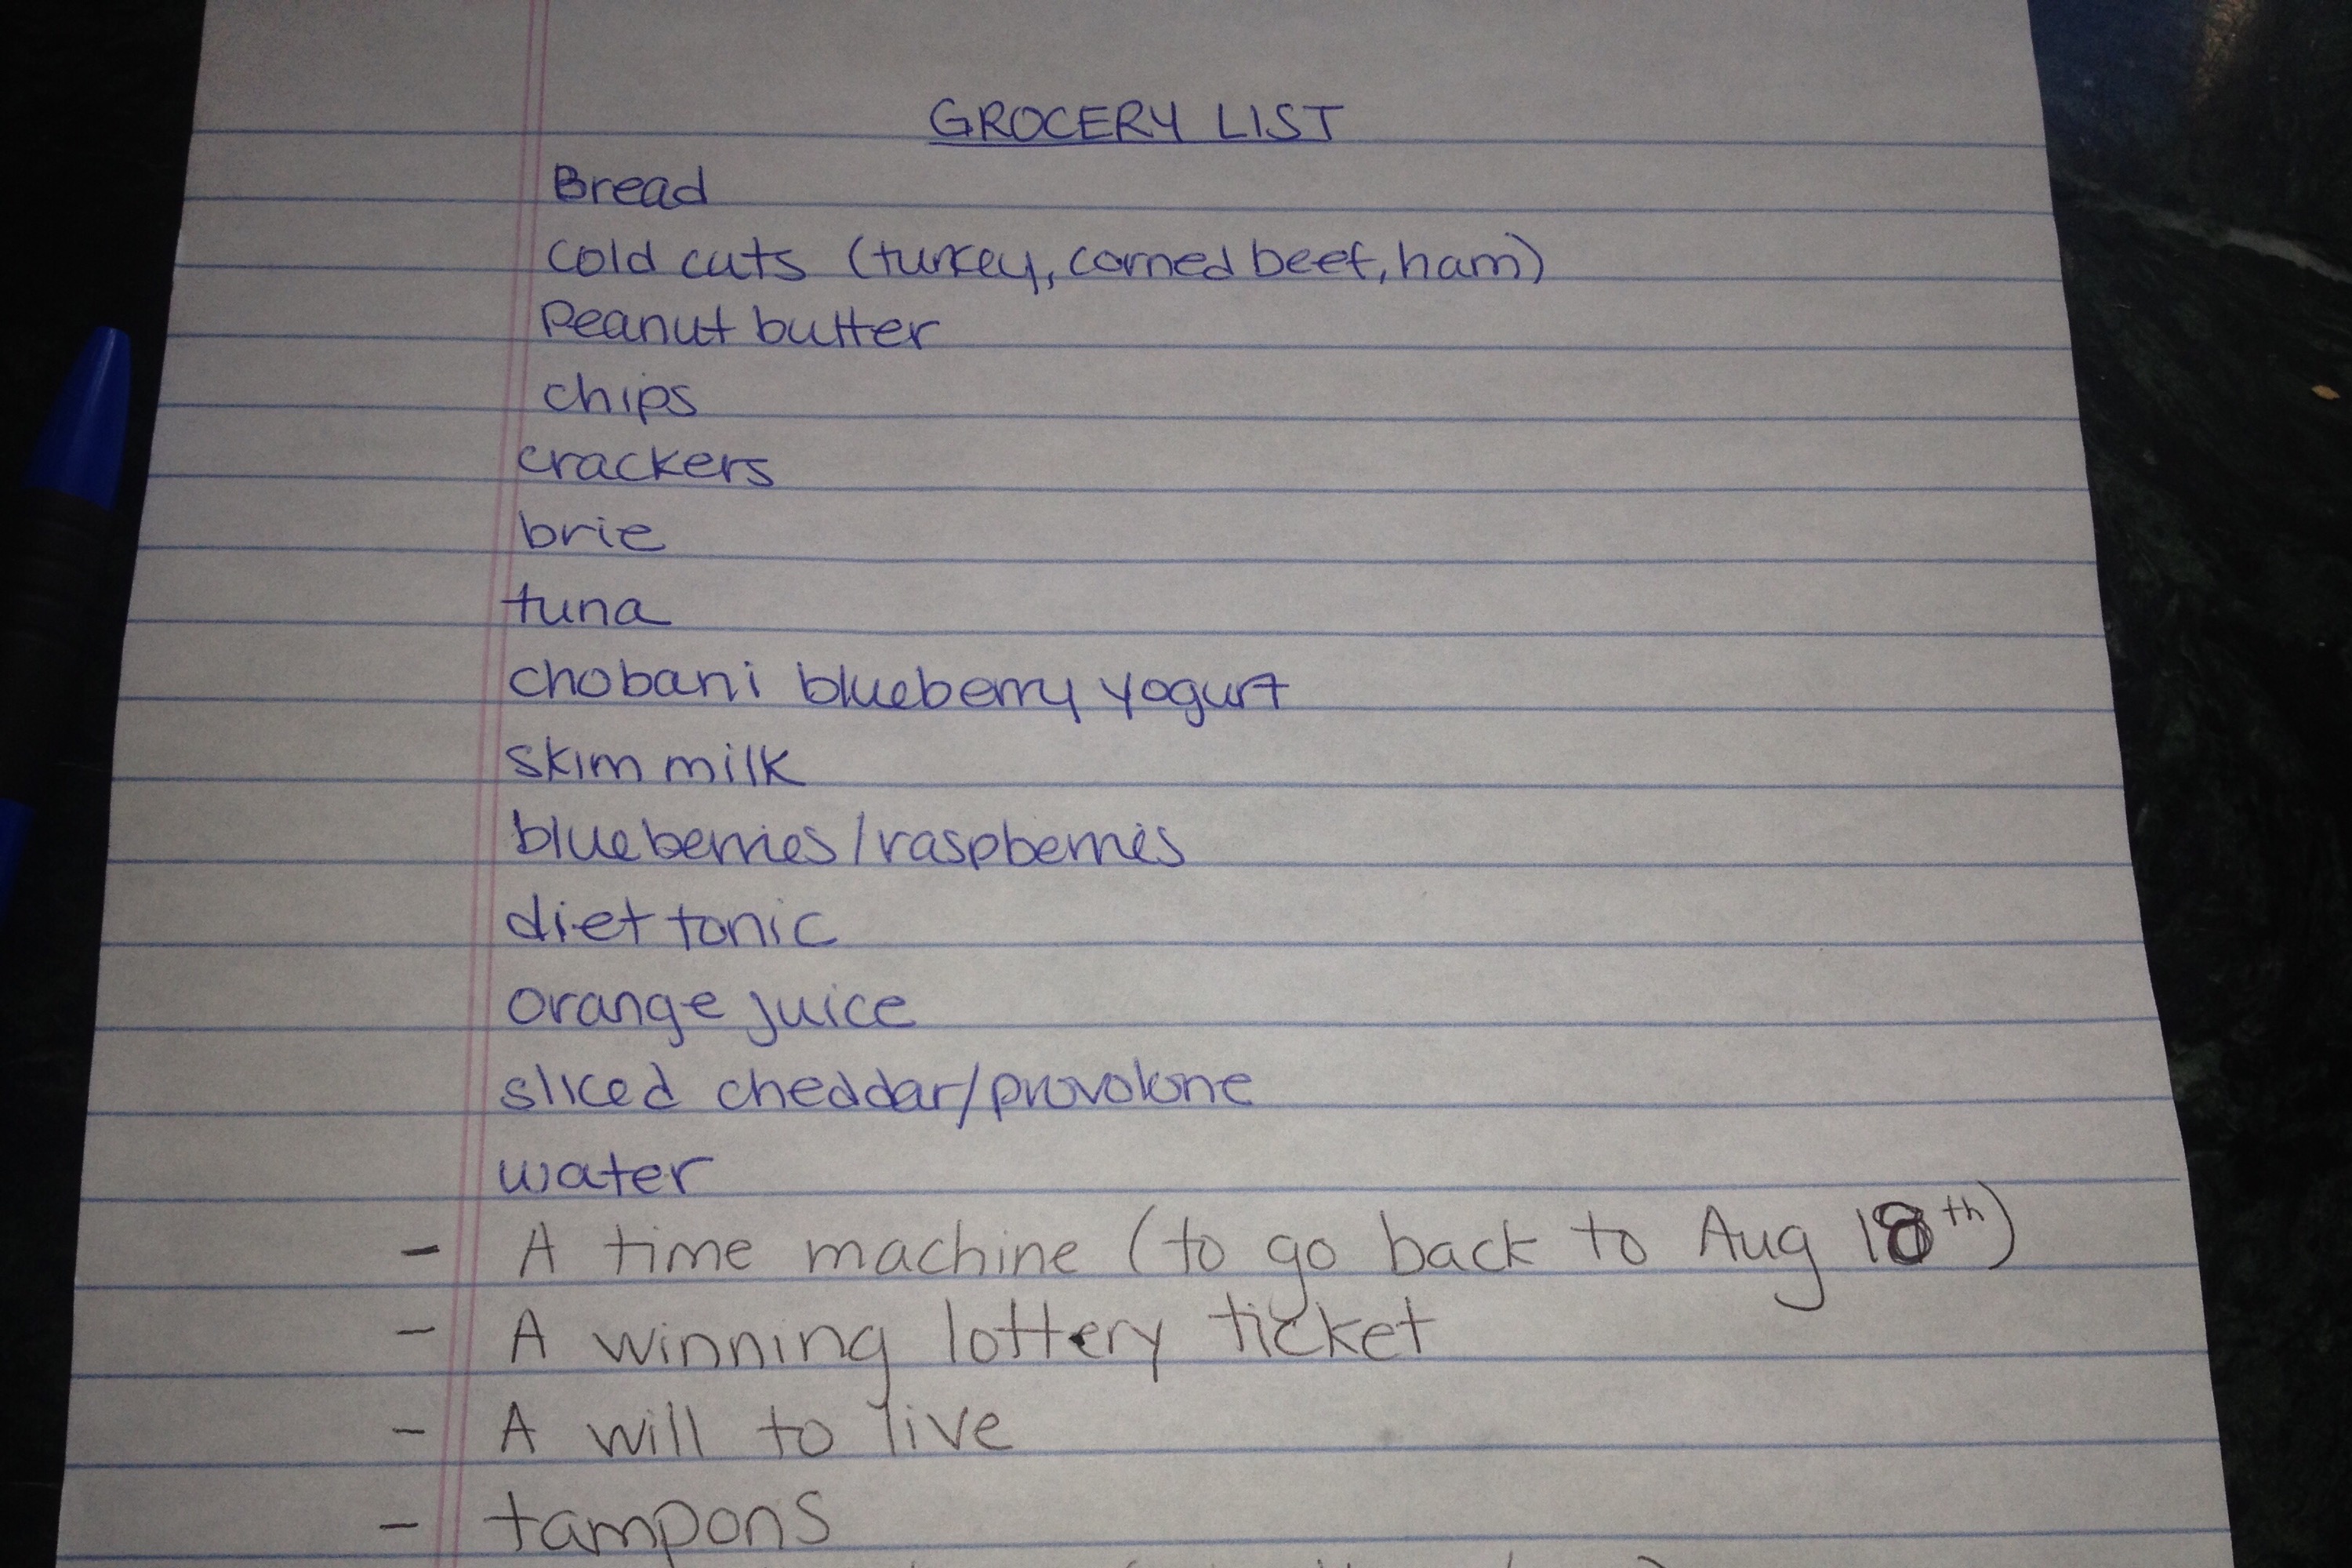 GROCERY LIST
Bread
cold cuts (turkey, corned beef, ham)
Peanut butter
chips
crackers
brie
tuna
chobani blueberry yogurt
skim milk
blueberries/raspberries
diet tonic
orange juice
sliced cheddar/provolone
water
- A time machine (to go back to Aug 18th)
- A winning lottery ticket
- A will to live
- tampons